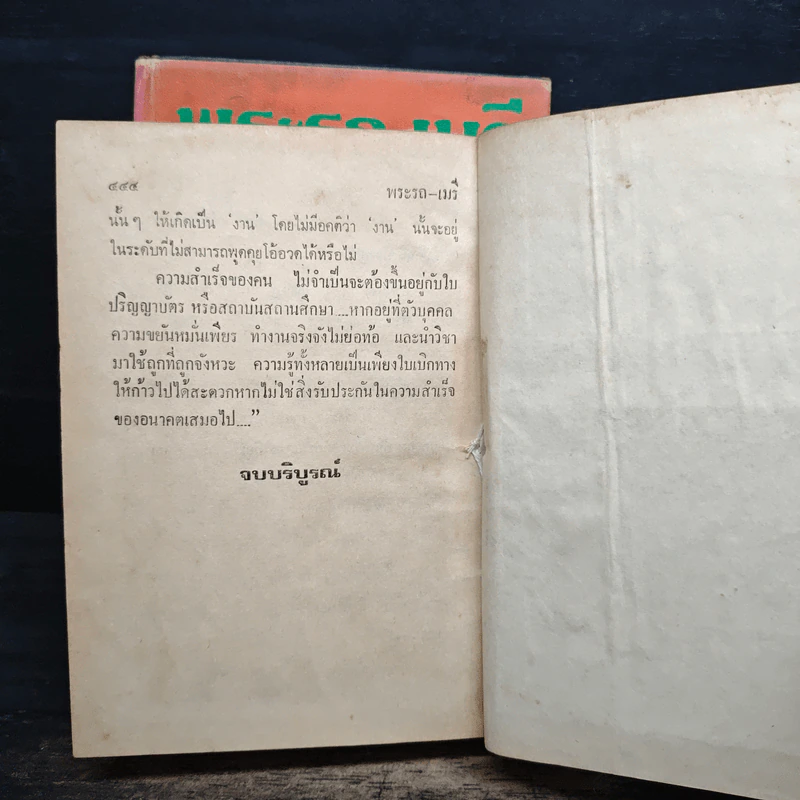 พระรถ-เมรี
๔๔๕
พระรถ-เมรี
นั้นๆ ให้เกิดเป็น 'งาน' โดยไม่มีอคติว่า 'งาน' นั้นจะอยู่
ในระดับที่ไม่สามารถพูดคุยโอ้อวดได้หรือไม่
ความสำเร็จของคน ไม่จำเป็นจะต้องขึ้นอยู่กับใบ
ปริญญาบัตร หรือสถาบันสถานศึกษา....หากอยู่ที่ตัวบุคคล
ความขยันหมั่นเพียร ทำงานจริงจังไม่ย่อท้อ และนำวิชา
มาใช้ถูกที่ถูกจังหวะ ความรู้ทั้งหลายเป็นเพียงใบเบิกทาง
ให้ก้าวไปได้สะดวกหากไม่ใช่สิ่งรับประกันในความสำเร็จ
ของอนาคตเสมอไป....”
จบบริบูรณ์